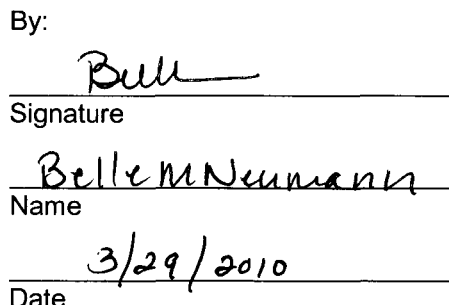 By:
Belle
Signature
Belle M Neumann
Name
3/29/2010
Date